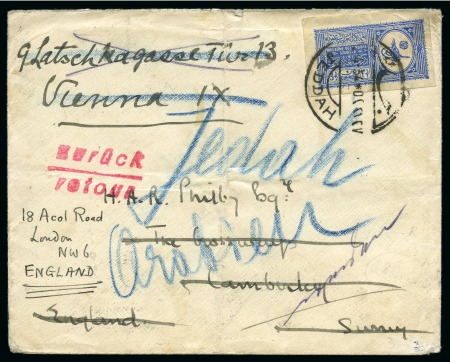 9 Latschkagasse Tür 13.
Vienna IX
JEDDAH
zurück
retour
Jedah
H. A. R. Philby Esqr
18 Acol Road
London
NW6
ENGLAND
The
Arabien
Camberley
England
Surrey